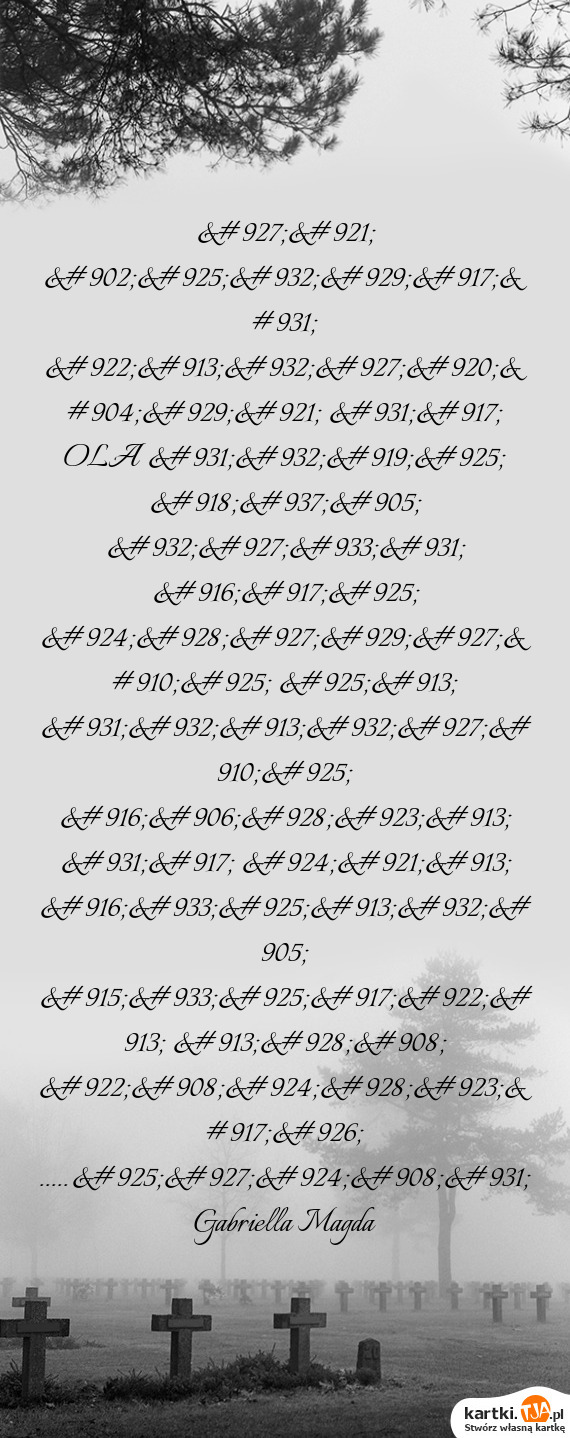 &#927;&#921;
&#902;&#925;&#932;&#929;&#917;&
#931;
&#922;&#913;&#932;&#927;&#920;&
#904;&#929;&#921; &#931;&#917;
OLA &#931;&#932;&#919;&#925;
&#918;&#937;&#905;
&#932;&#927;&#933;&#931;
&#916;&#917;&#925;
&#924;&#928;&#927;&#929;&#927;&
#910;&#925; &#925;&#913;
&#931;&#932;&#913;&#932;&#927;&#
910;&#925;
&#916;&#906;&#928;&#923;&#913;
&#931;&#917; &#924;&#921;&#913;
&#916;&#933;&#925;&#913;&#932;&#
905;
&#915;&#933;&#925;&#917;&#922;&#
913; &#913;&#928;&#908;
&#922;&#908;&#924;&#928;&#923;&
#917;&#926;
.....&#925;&#927;&#924;&#908;&#931;
Gabriella Magda
kartki.TJA.pl
Stwórz własną kartkę